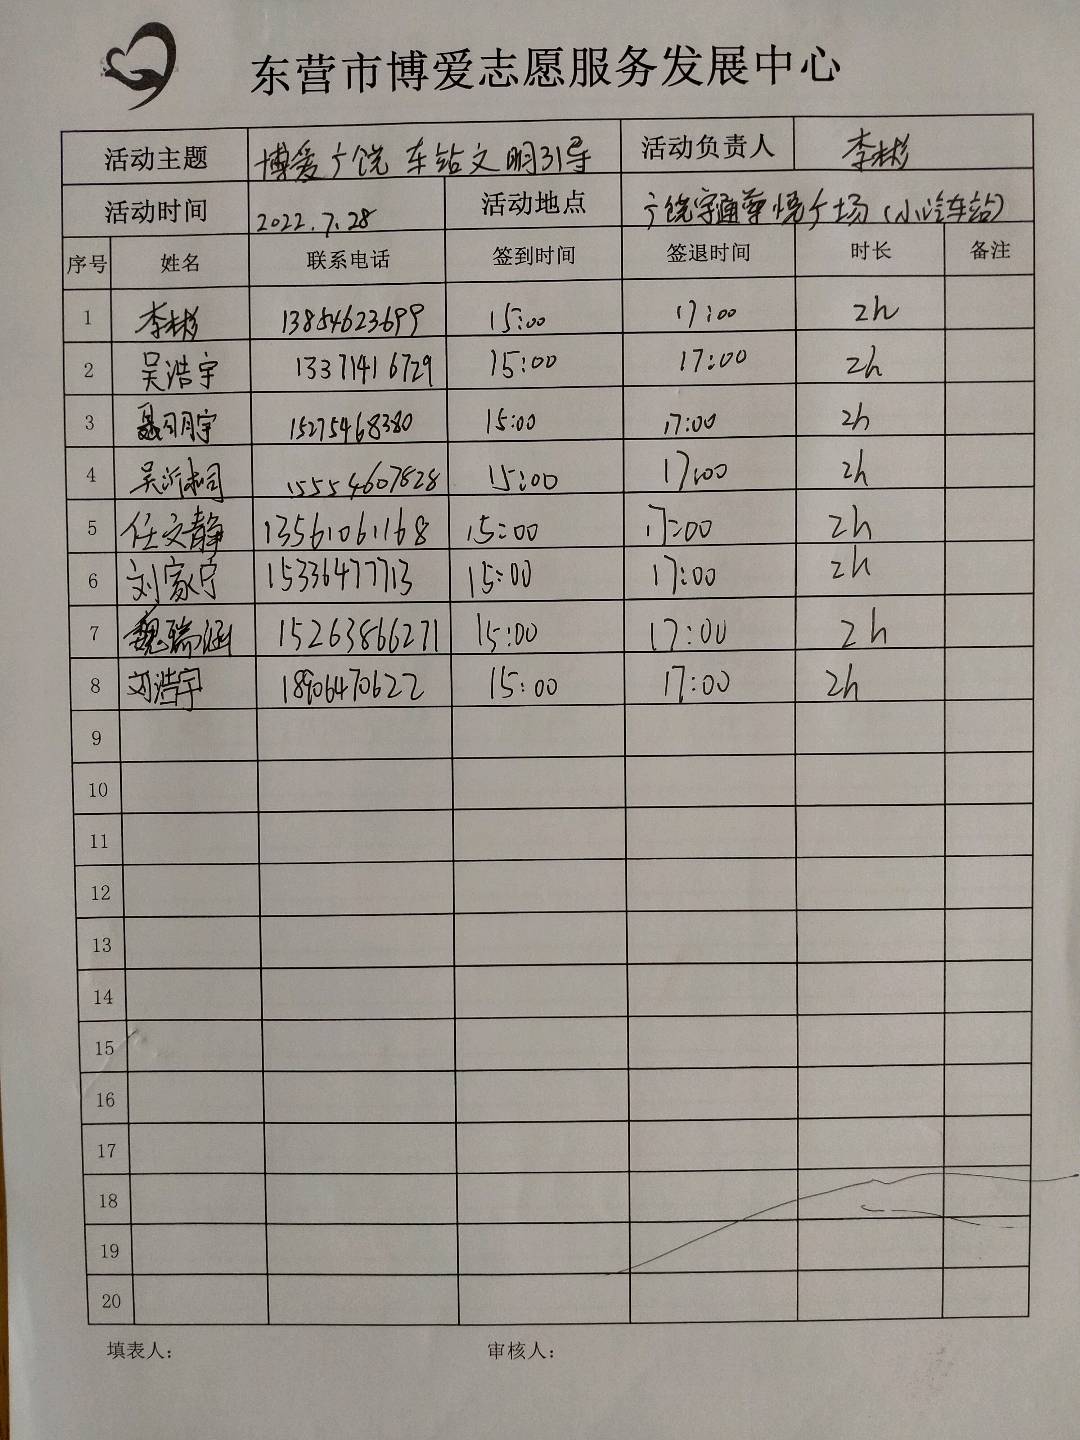 东营市博爱志愿服务发展中心
活动主题 博爱广饶 车站文明引导 活动负责人 李彬彬
活动时间 2022.7.28 活动地点 广饶宇通华悦广场(小汽车站)
序号 姓名 联系电话 签到时间 签退时间 时长 备注
1 李彬彬 13854623699 15:00 17:00 2h
2 吴浩宇 13371416729 15:00 17:00 2h
3 15275468380 15:00 17:00 2h
4 15554607828 15:00 17:00 2h
5 任文静 13561061168 15:00 17:00 2h
6 刘家宁 15336477713 15:00 17:00 2h
7 魏瑞涵 15263866271 15:00 17:00 2h
8 刘浩宇 18906470622 15:00 17:00 2h
9
10
11
12
13
14
15
16
17
18
19
20
填表人: 审核人: